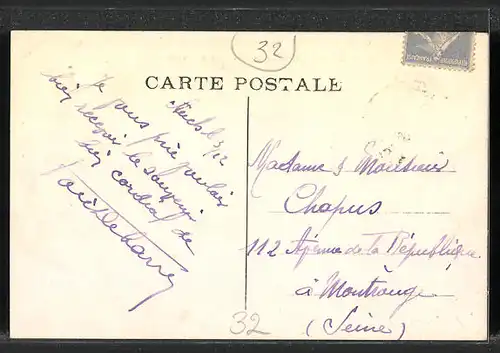 32
CARTE POSTALE
Auch le 3/12
Je vous prie vouloir
bien recevoir le souvenir
bien cordial de
Madame & Monsieur
Chapus
112 Avenue de la République
à Montrouge
(Seine)
32